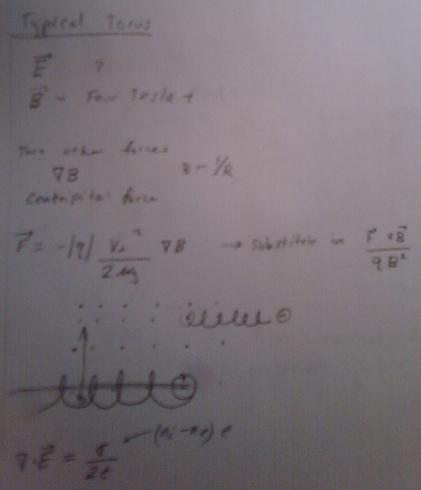 Typical Torus
E⃗ ?
B⃗ ~ Four Tesla +
Two other forces
∇B B ~ 1/R
Centripital force
F⃗ = -|q| v⊥² / 2ωg ∇B → Substitute in F⃗ × B⃗ / qB²
(ni - ne) e
∇·E⃗ = σ / 2ε